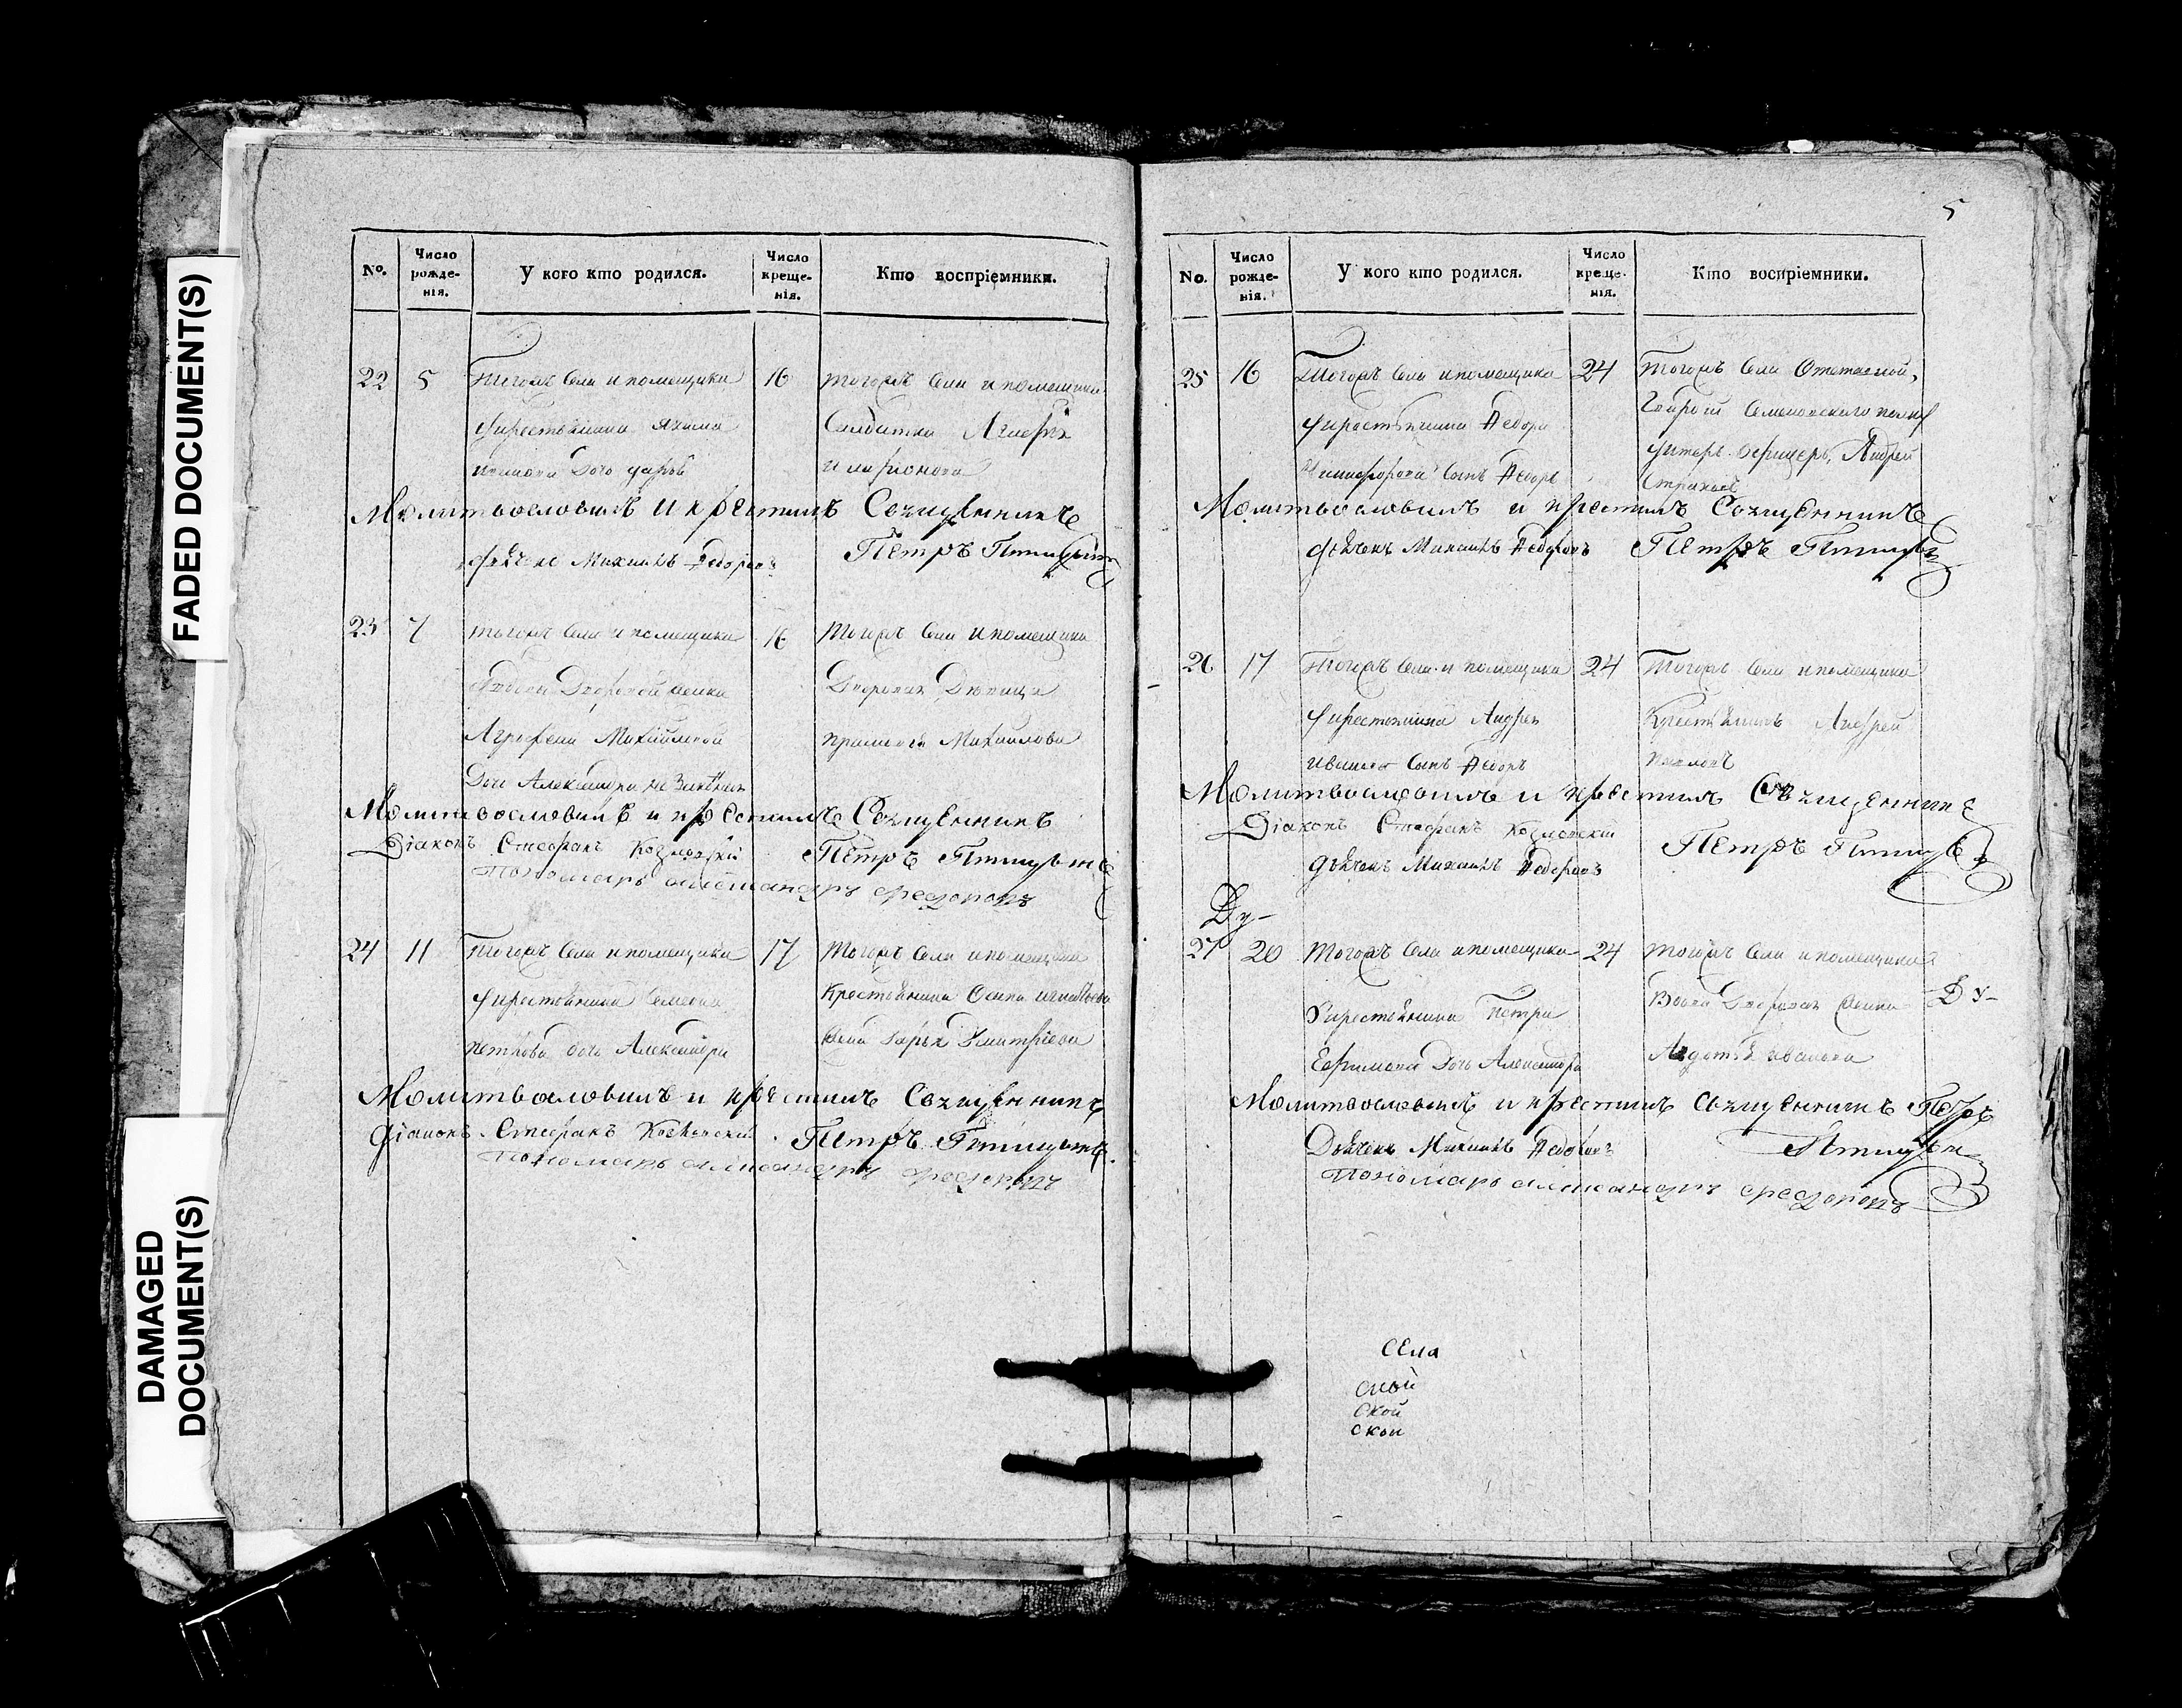 FADED DOCUMENT(S)
DAMAGED
DOCUMENT(S)
No.
Число
рожде-
нія.
У кого кто родился.
Число
креще-
нія.
Кто воспріемники.
22
5
Тогожъ села и помещика
крестьянина Якима
дочь
16
тогожъ села и помещика
Салдатка
иларионова
Молитвословилъ и крестилъ Священникъ
Петръ
дьячекъ Михаилъ Федоровъ
23
7
тогожъ села и помещика
дворовой девки
Агрофены Михайловой
Дочь Александра
16
тогожъ села и помещика
Дворовая Девица
Михайлова
Молитвословилъ и крестилъ Священникъ
Діаконъ Стефанъ Козловский
Петръ
Пономарь александръ федоровъ
24
11
Тогожъ села и помещика
крестьянина Семена
петрова дочь Александра
17
тогожъ села и помещика
Крестьянина Осипа игнатьева
жена Дарья Дмитріева
Молитвословилъ и крестилъ Священникъ
діаконъ Стефанъ Козловский
Петръ
Пономарь александръ федоровъ
5
No.
Число
рожде-
нія.
У кого кто родился.
Число
креще-
нія.
Кто воспріемники.
25
16
Тогожъ села и помещика
крестьянина Федора
Никифорова сынъ Федоръ
24
тогожъ села Отставной,
Семеновского полку
унтеръ-офицеръ, Андрей
Молитвословилъ и крестилъ Священникъ
дьячекъ Михаилъ Федоровъ
Петръ
26
17
Тогожъ села и помещика
крестьянина Андрея
иванова сынъ Федоръ
24
Тогожъ села и помещика
Крестьянинъ Андрей
Молитвословилъ и крестилъ Священникъ
Діаконъ Стефанъ Козловский
Петръ
дьячекъ Михаилъ Федоровъ
Ду-
27
20
тогожъ села и помещика
крестьянина Петра
Ефимова дочь Александра
24
тогожъ села и помещика
Вдова Дворовая
Авдотья иванова
Ду-
Молитвословилъ и крестилъ священникъ Петръ
Дьячекъ Михаилъ Федоровъ
Пономарь александръ федоровъ
СЕла
ской
ской
ской